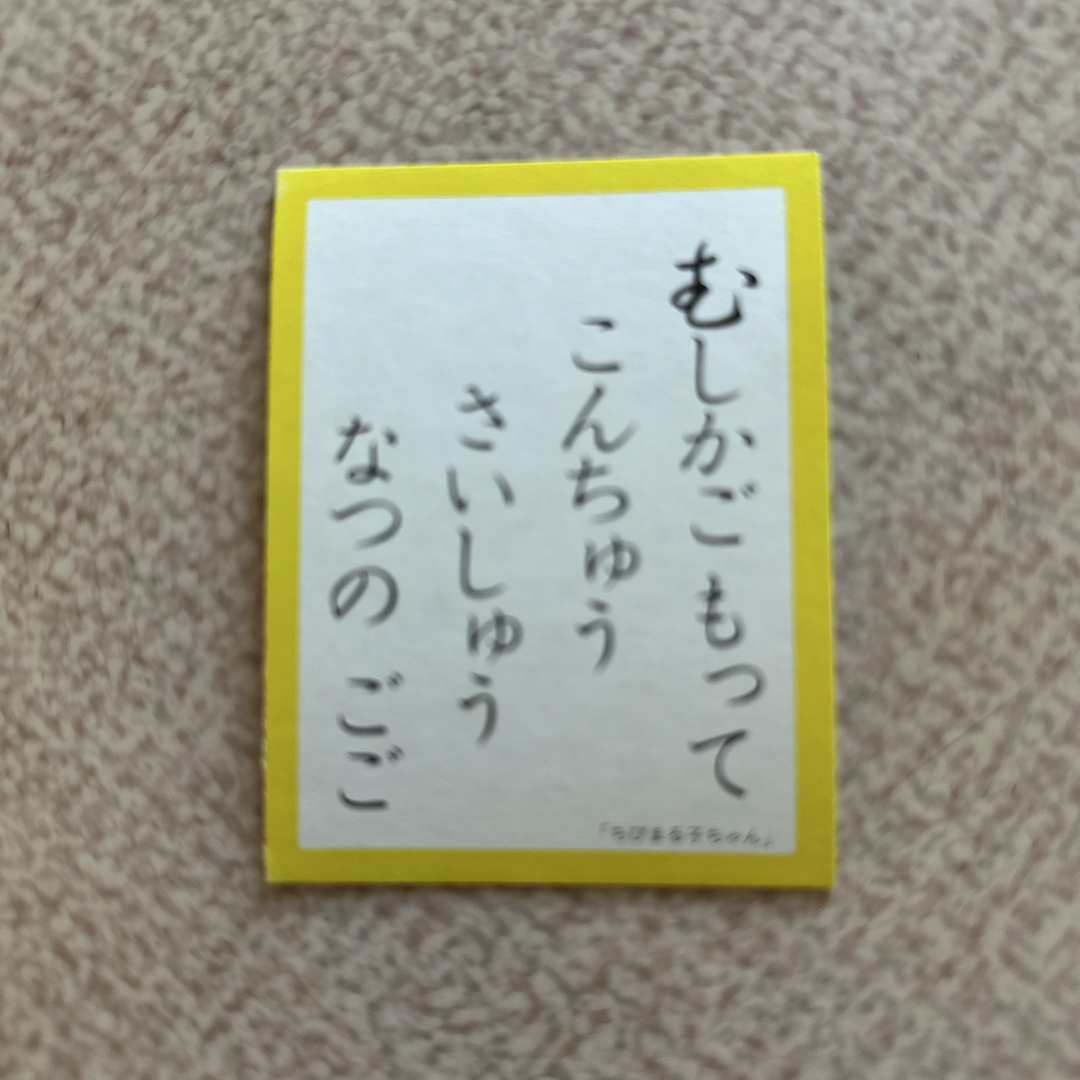 むしかご もって
こんちゅう
さいしゅう
なつの ごご
「ちびまる子ちゃん」